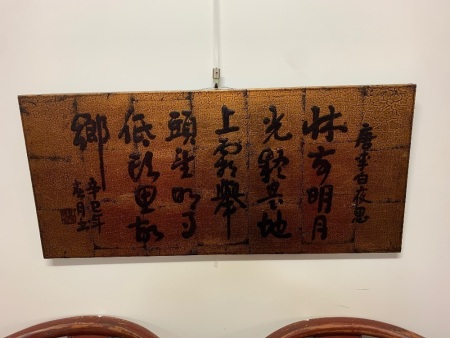 唐李白夜思
牀前明月
光疑是地
上霜舉
頭望明月
低頭思故
鄉
辛巳年